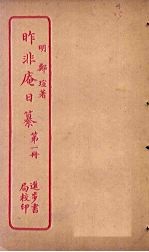 明 鄭瑄著
昨非庵日纂 第一冊
進步書
局校印